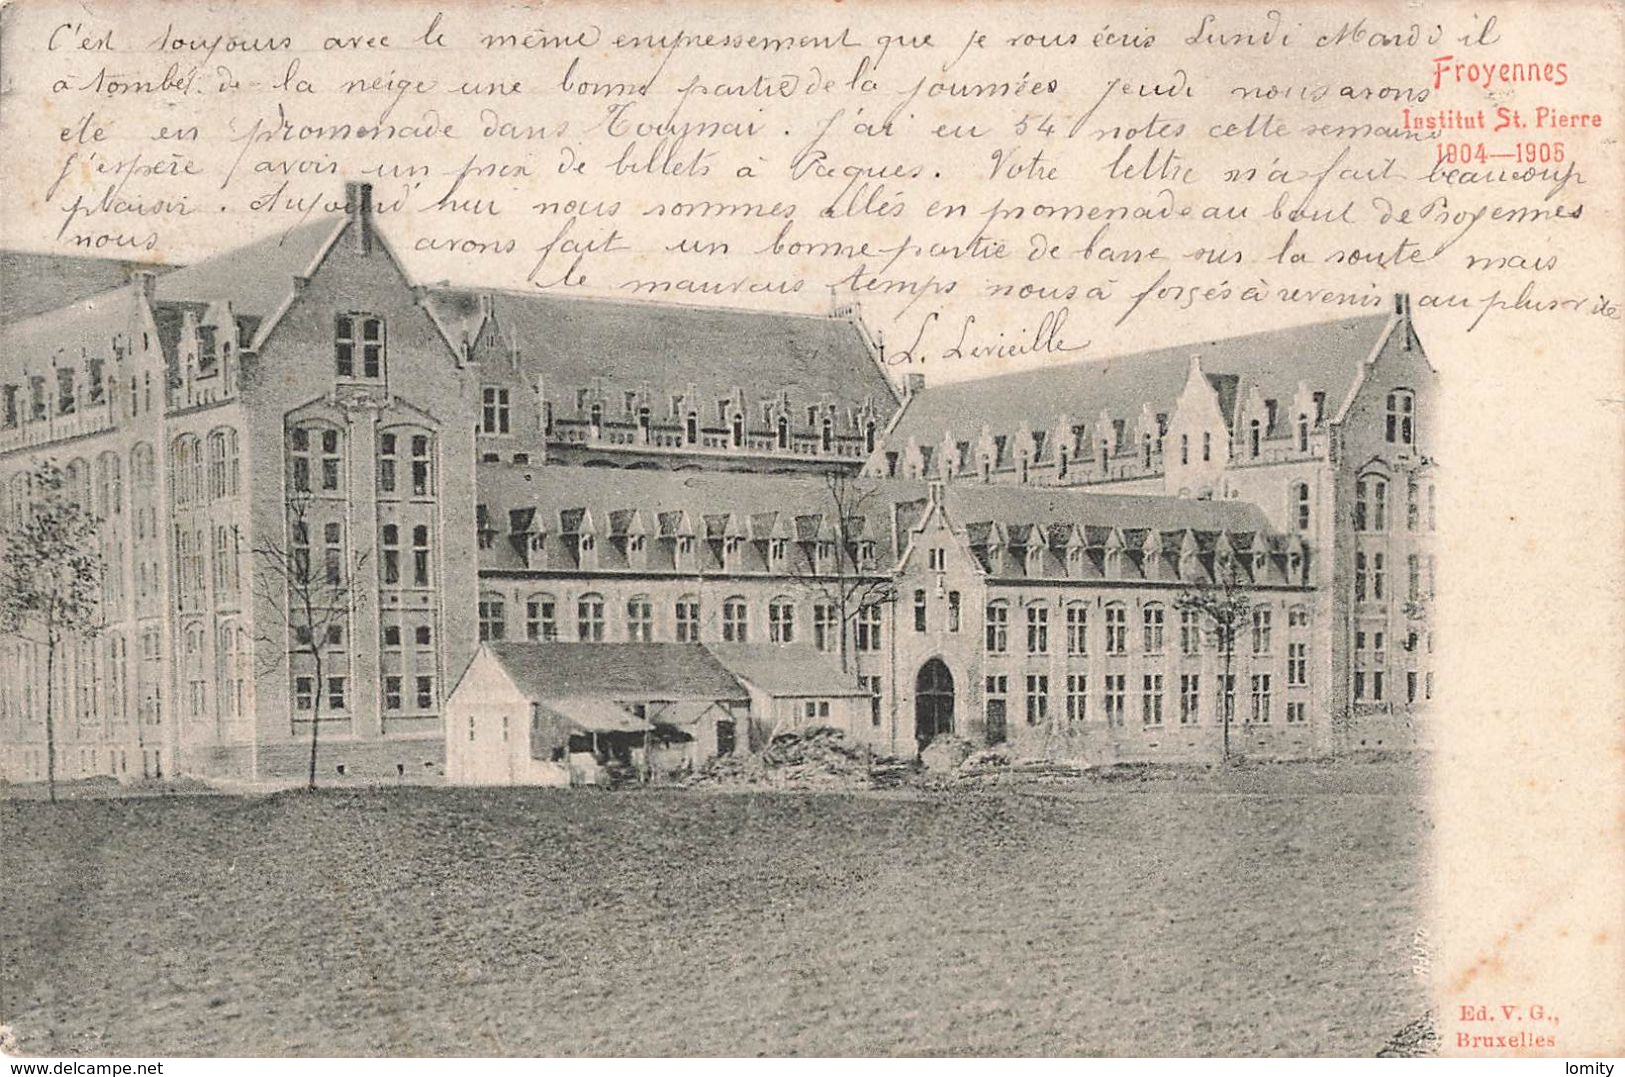 C'est toujours avec le même empressement que je vous écris Lundi Mardi il
à tombé de la neige une bonne partie de la journées jeudi nous avons
été en promenade dans Tournai. J'ai eu 54 notes cette semaine
j'espère avoir un prix de billets à Pacques. Votre lettre m'a fait beaucoup
plaisir. Aujourd'hui nous sommes allés en promenade au bout de Froyennes
nous avons fait un bonne partie de barre sur la route mais
le mauvais temps nous à forgés à revenir au plus vite
L. Levieille
Froyennes
Institut St. Pierre
1904—1905
Ed. V. G.,
Bruxelles
delcampe.net
lomity